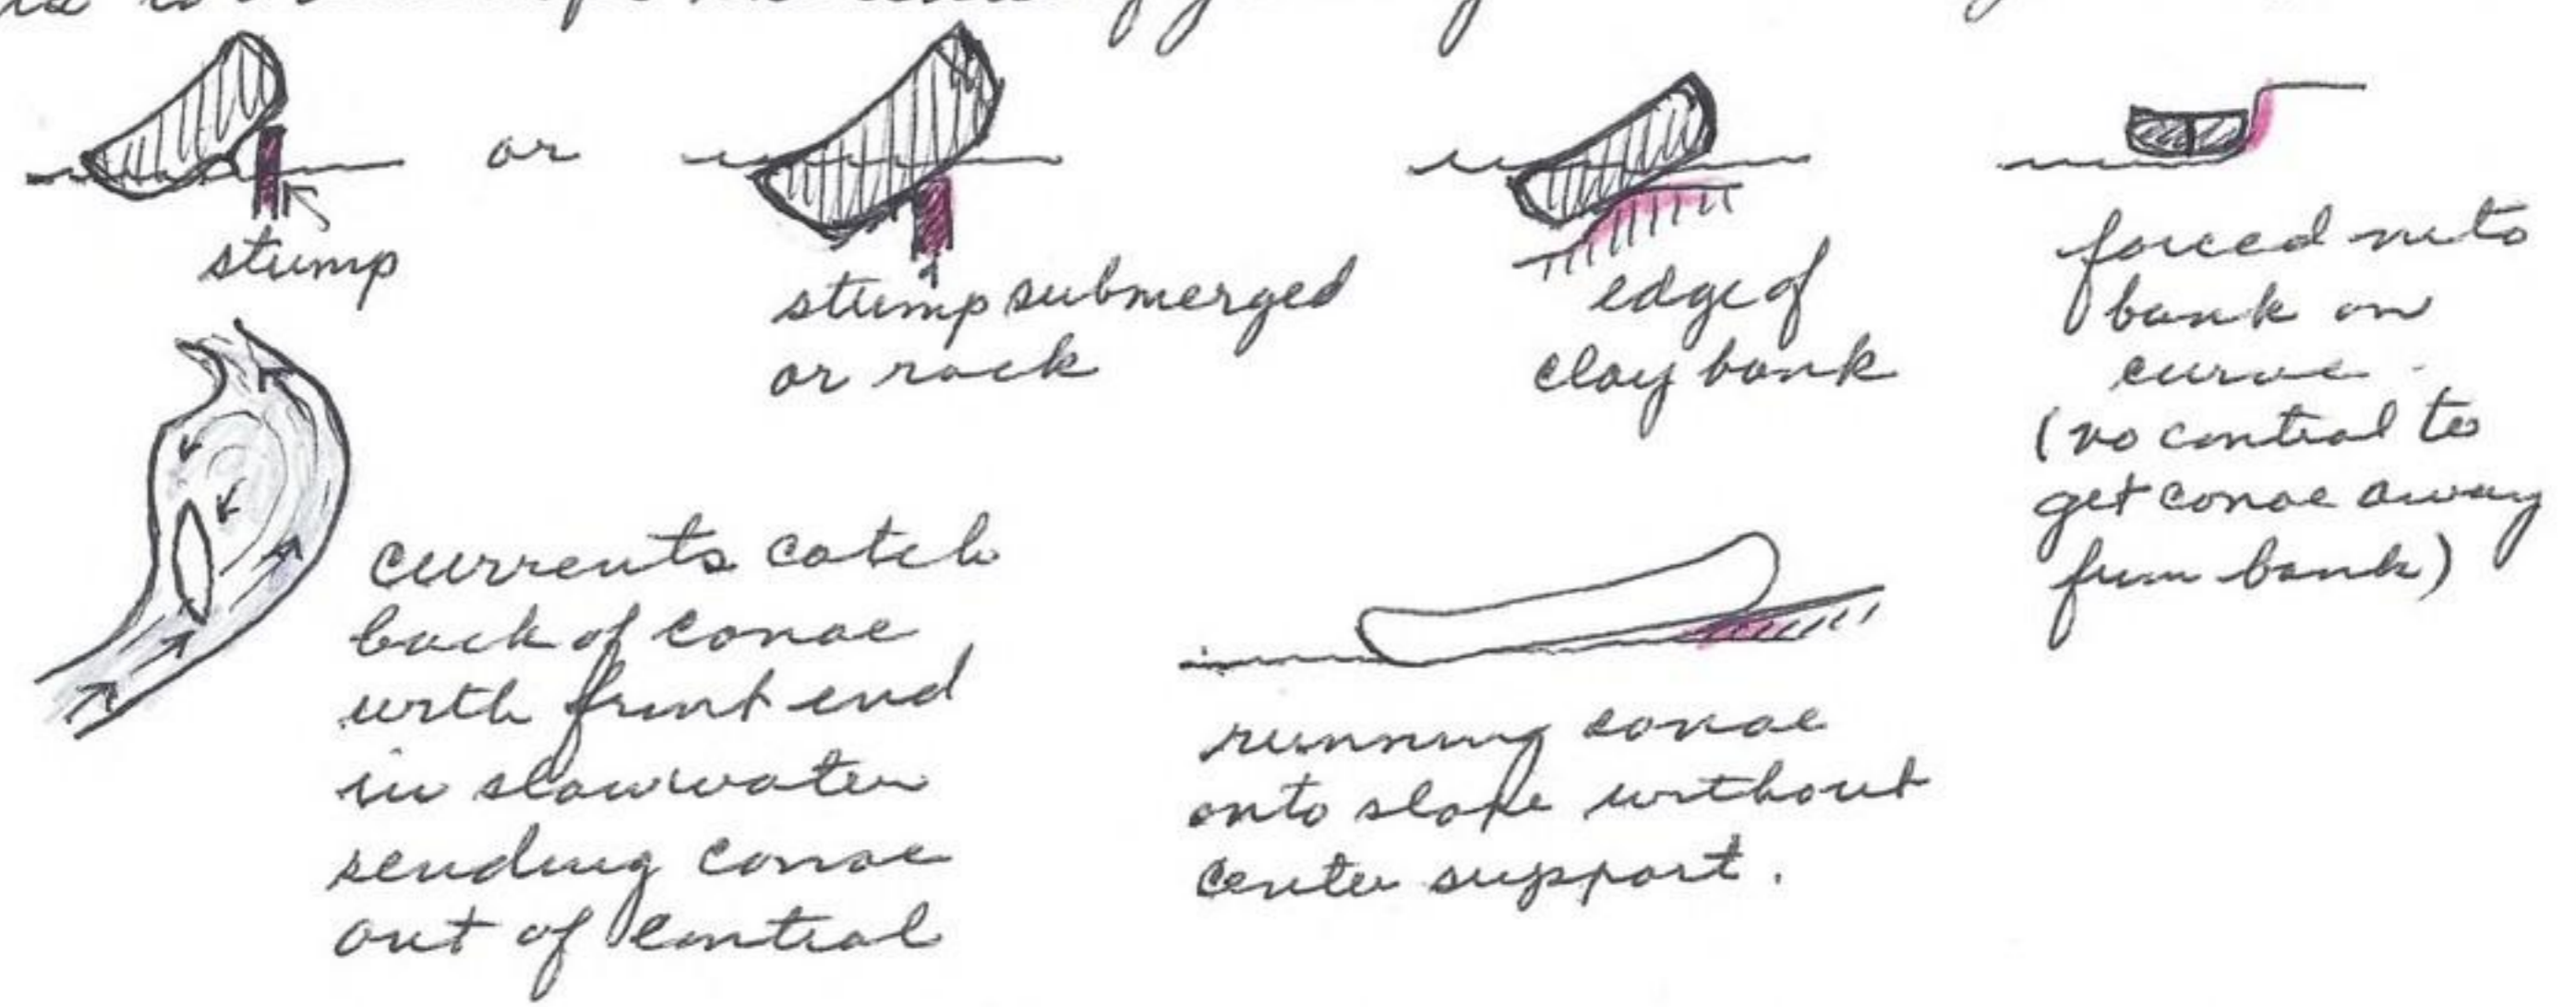 or
stump
stump submerged
or rock
edge of
clay bank
forced into
bank on
curve.
(no control to
get canoe away
from bank)
currents catch
back of canoe
with front end
in slow water
sending canoe
out of control
running canoe
onto slope without
center support.